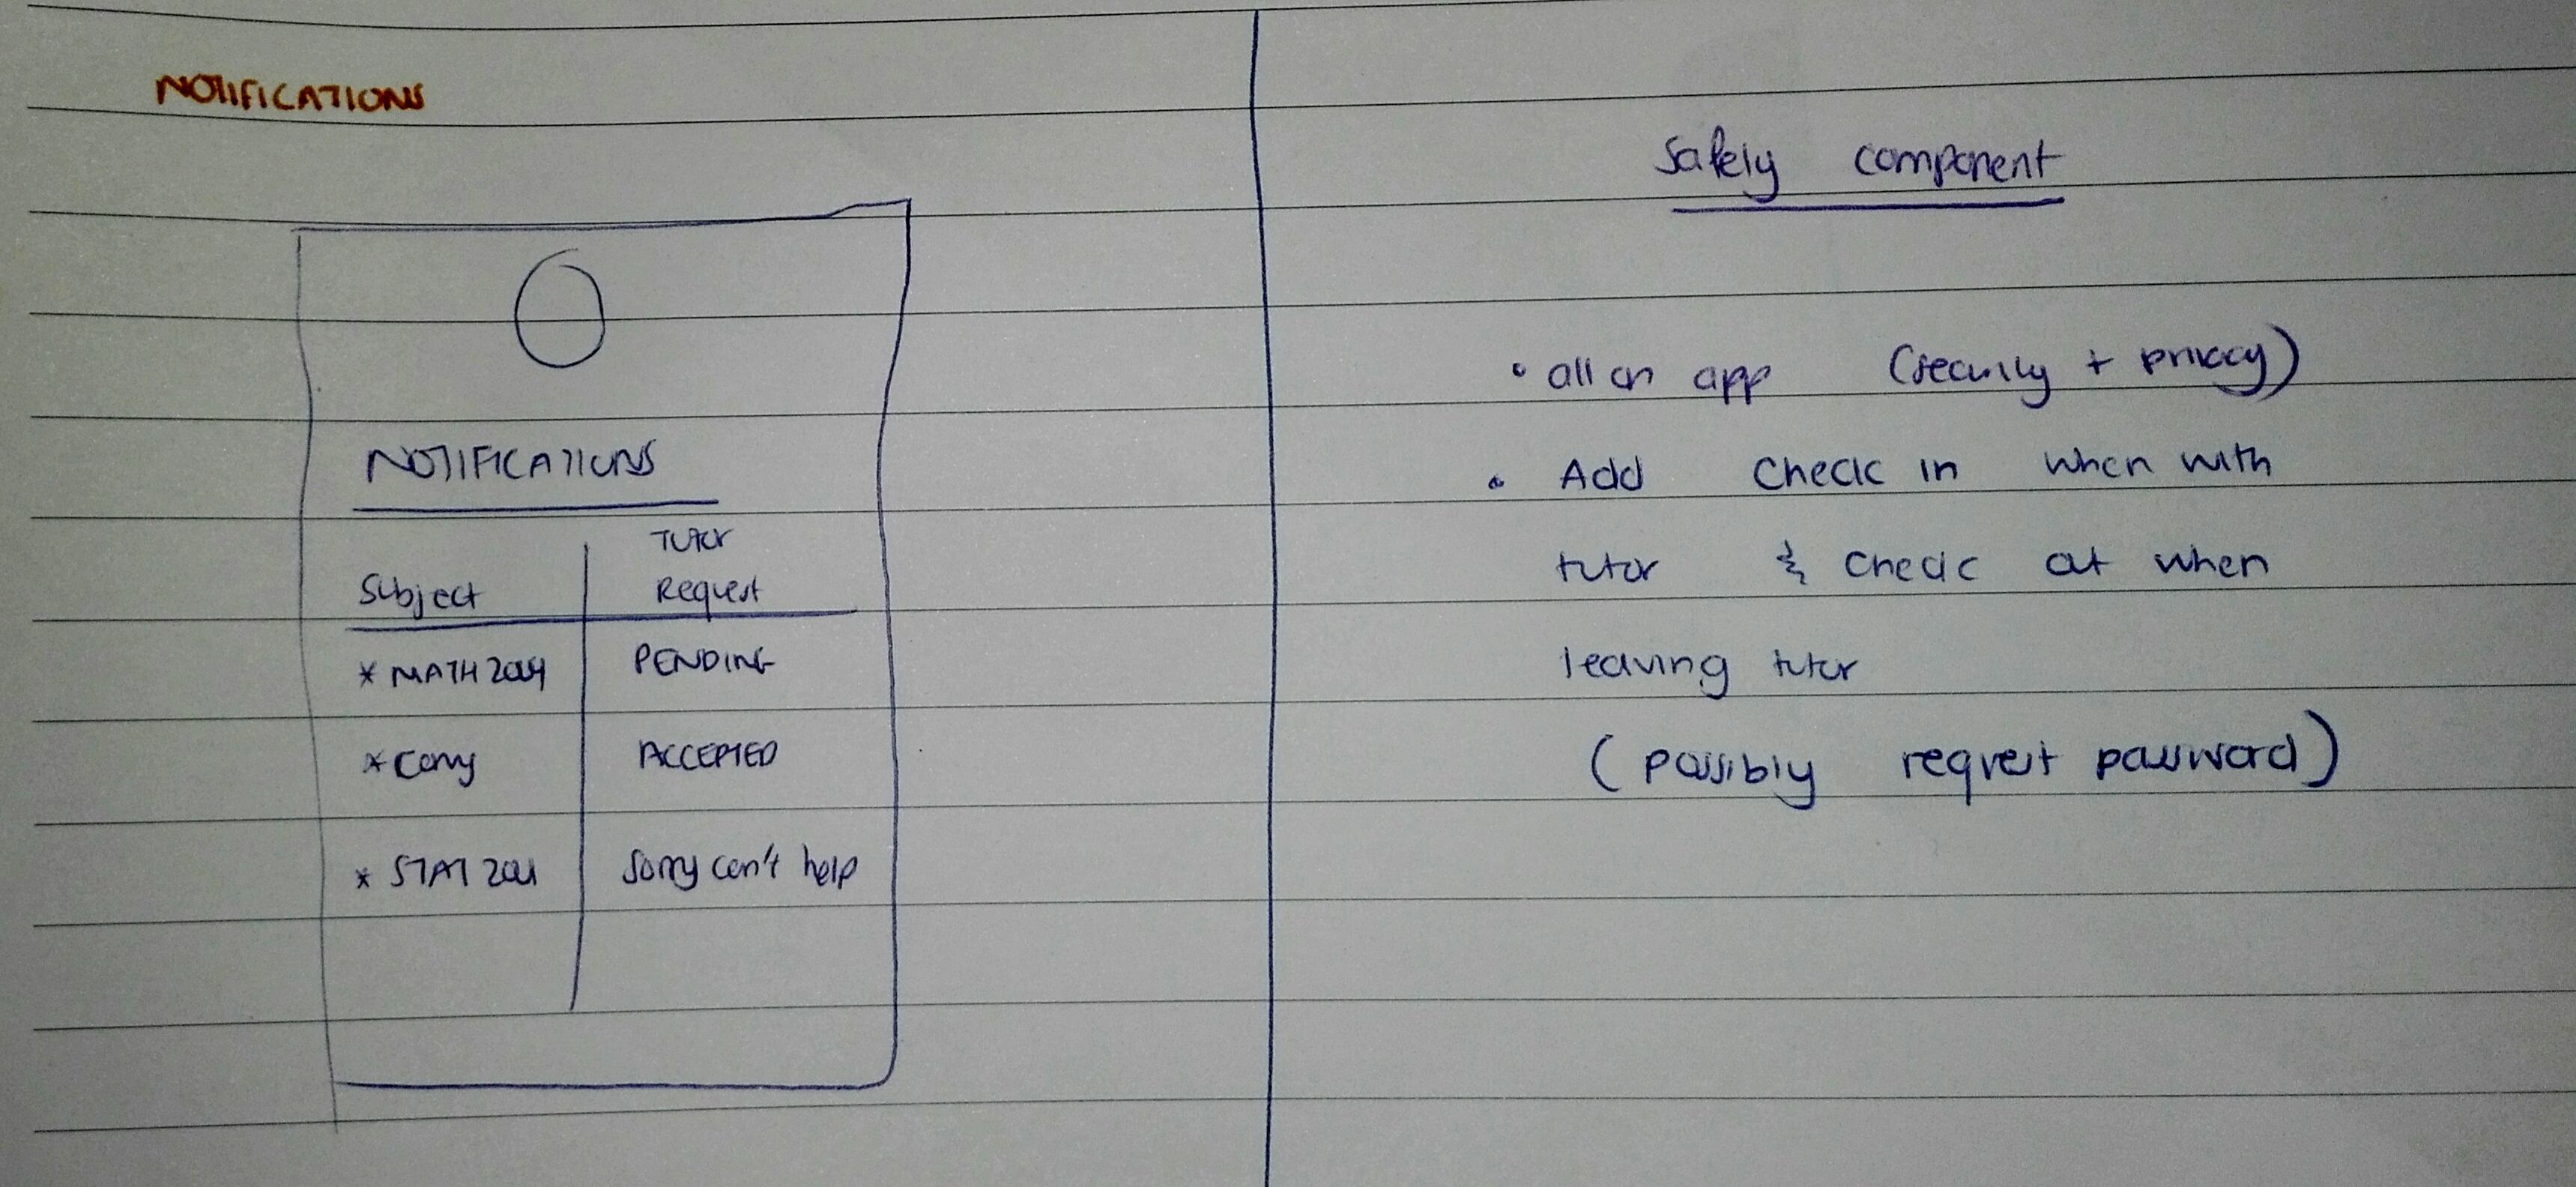 NOTIFICATIONS
NOTIFICATIONS
Tutor
Subject Request
* MATH2004 PENDING
* ACCEPTED
* STAT 2001 Sorry can't help
Safety component
• all on app (security + privacy)
• Add Check in when with
tutor & check out when
leaving tutor
(possibly request password)